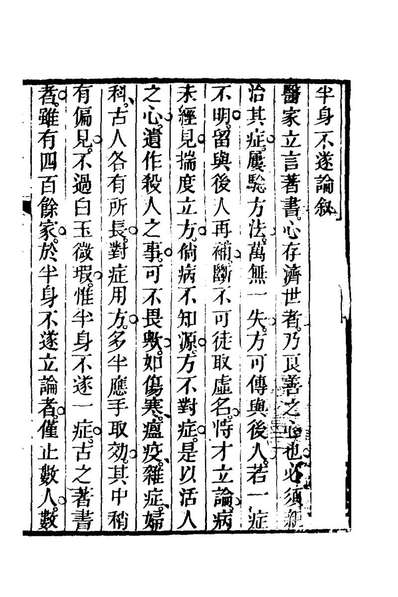 半身不遂論叙
醫家立言著書心存濟世者乃良善之心也必須親
治其症屢騐方法萬無一失方可傳與後人若一症
不明留與後人再補斷不可徒取虛名恃才立論病
未經見揣度立方倘病不知源方不對症是以活人
之心遺作殺人之事可不畏歟如傷寒瘟疫雜症婦
科古人各有所長對症用方多半應手取效其中稍
有偏見不過白玉微瑕惟半身不遂一症古之著書
者雖有四百餘家於半身不遂立論者僅止數人數